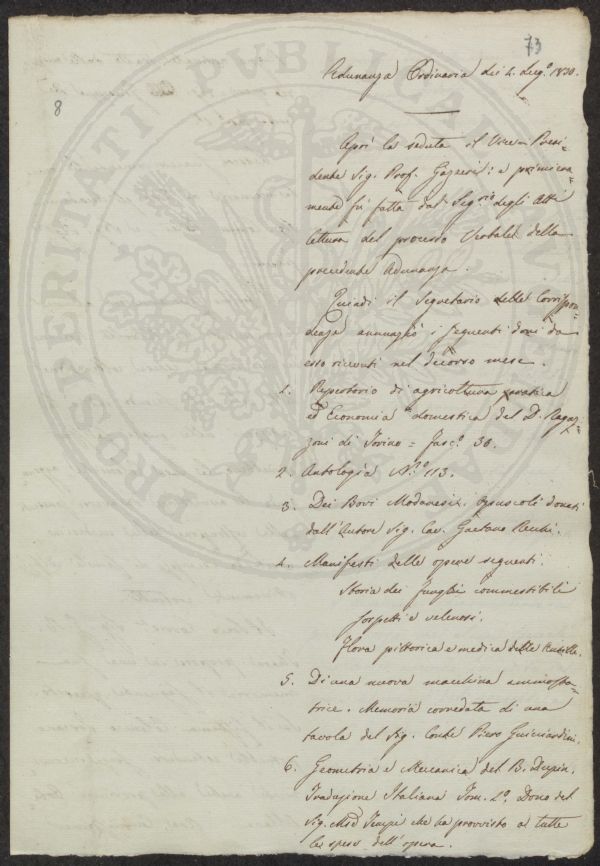 73
8
Adunanza Ordinaria dei 4. Lug.º 1830.
Aprì la seduta il Vice-Presi-
dente Sig. Prof. Gazzeri: e primiera-
mente fù fatta dal Seg.rio degli Atti
lettura del processo Verbale della
precedente Adunanza.
Quindi il Segretario delle Corrispon-
denze annunziò i seguenti doni da
esso ricevuti nel decorso mese.
1. Repertorio di agricoltura pratica
ed Economia domestica del D. Ragaz-
zoni di Torino = Fasc.º 30.
2. Antologia N.º 113.
3. Dei Bovi Modanesi. opuscoli donati
dall'Autore Sig. Cav. Gaetano
4. Manifesti delle opere seguenti.
Storia dei funghi commestibili
sospetti e velenosi.
Flora pittorica e medica delle
5. Di una nuova macchina ammosta-
trice. Memoria corredata di una
tavola del Sig. Conte Piero Guicciardini.
6. Geometria e Meccanica del B. Dupin.
Traduzione Italiana Tom. 2.º Dono del
Sig. Mse Tempi che ha provvisto a tutte
le spese dell'opera.
PROSPERITATI PVBLICAE